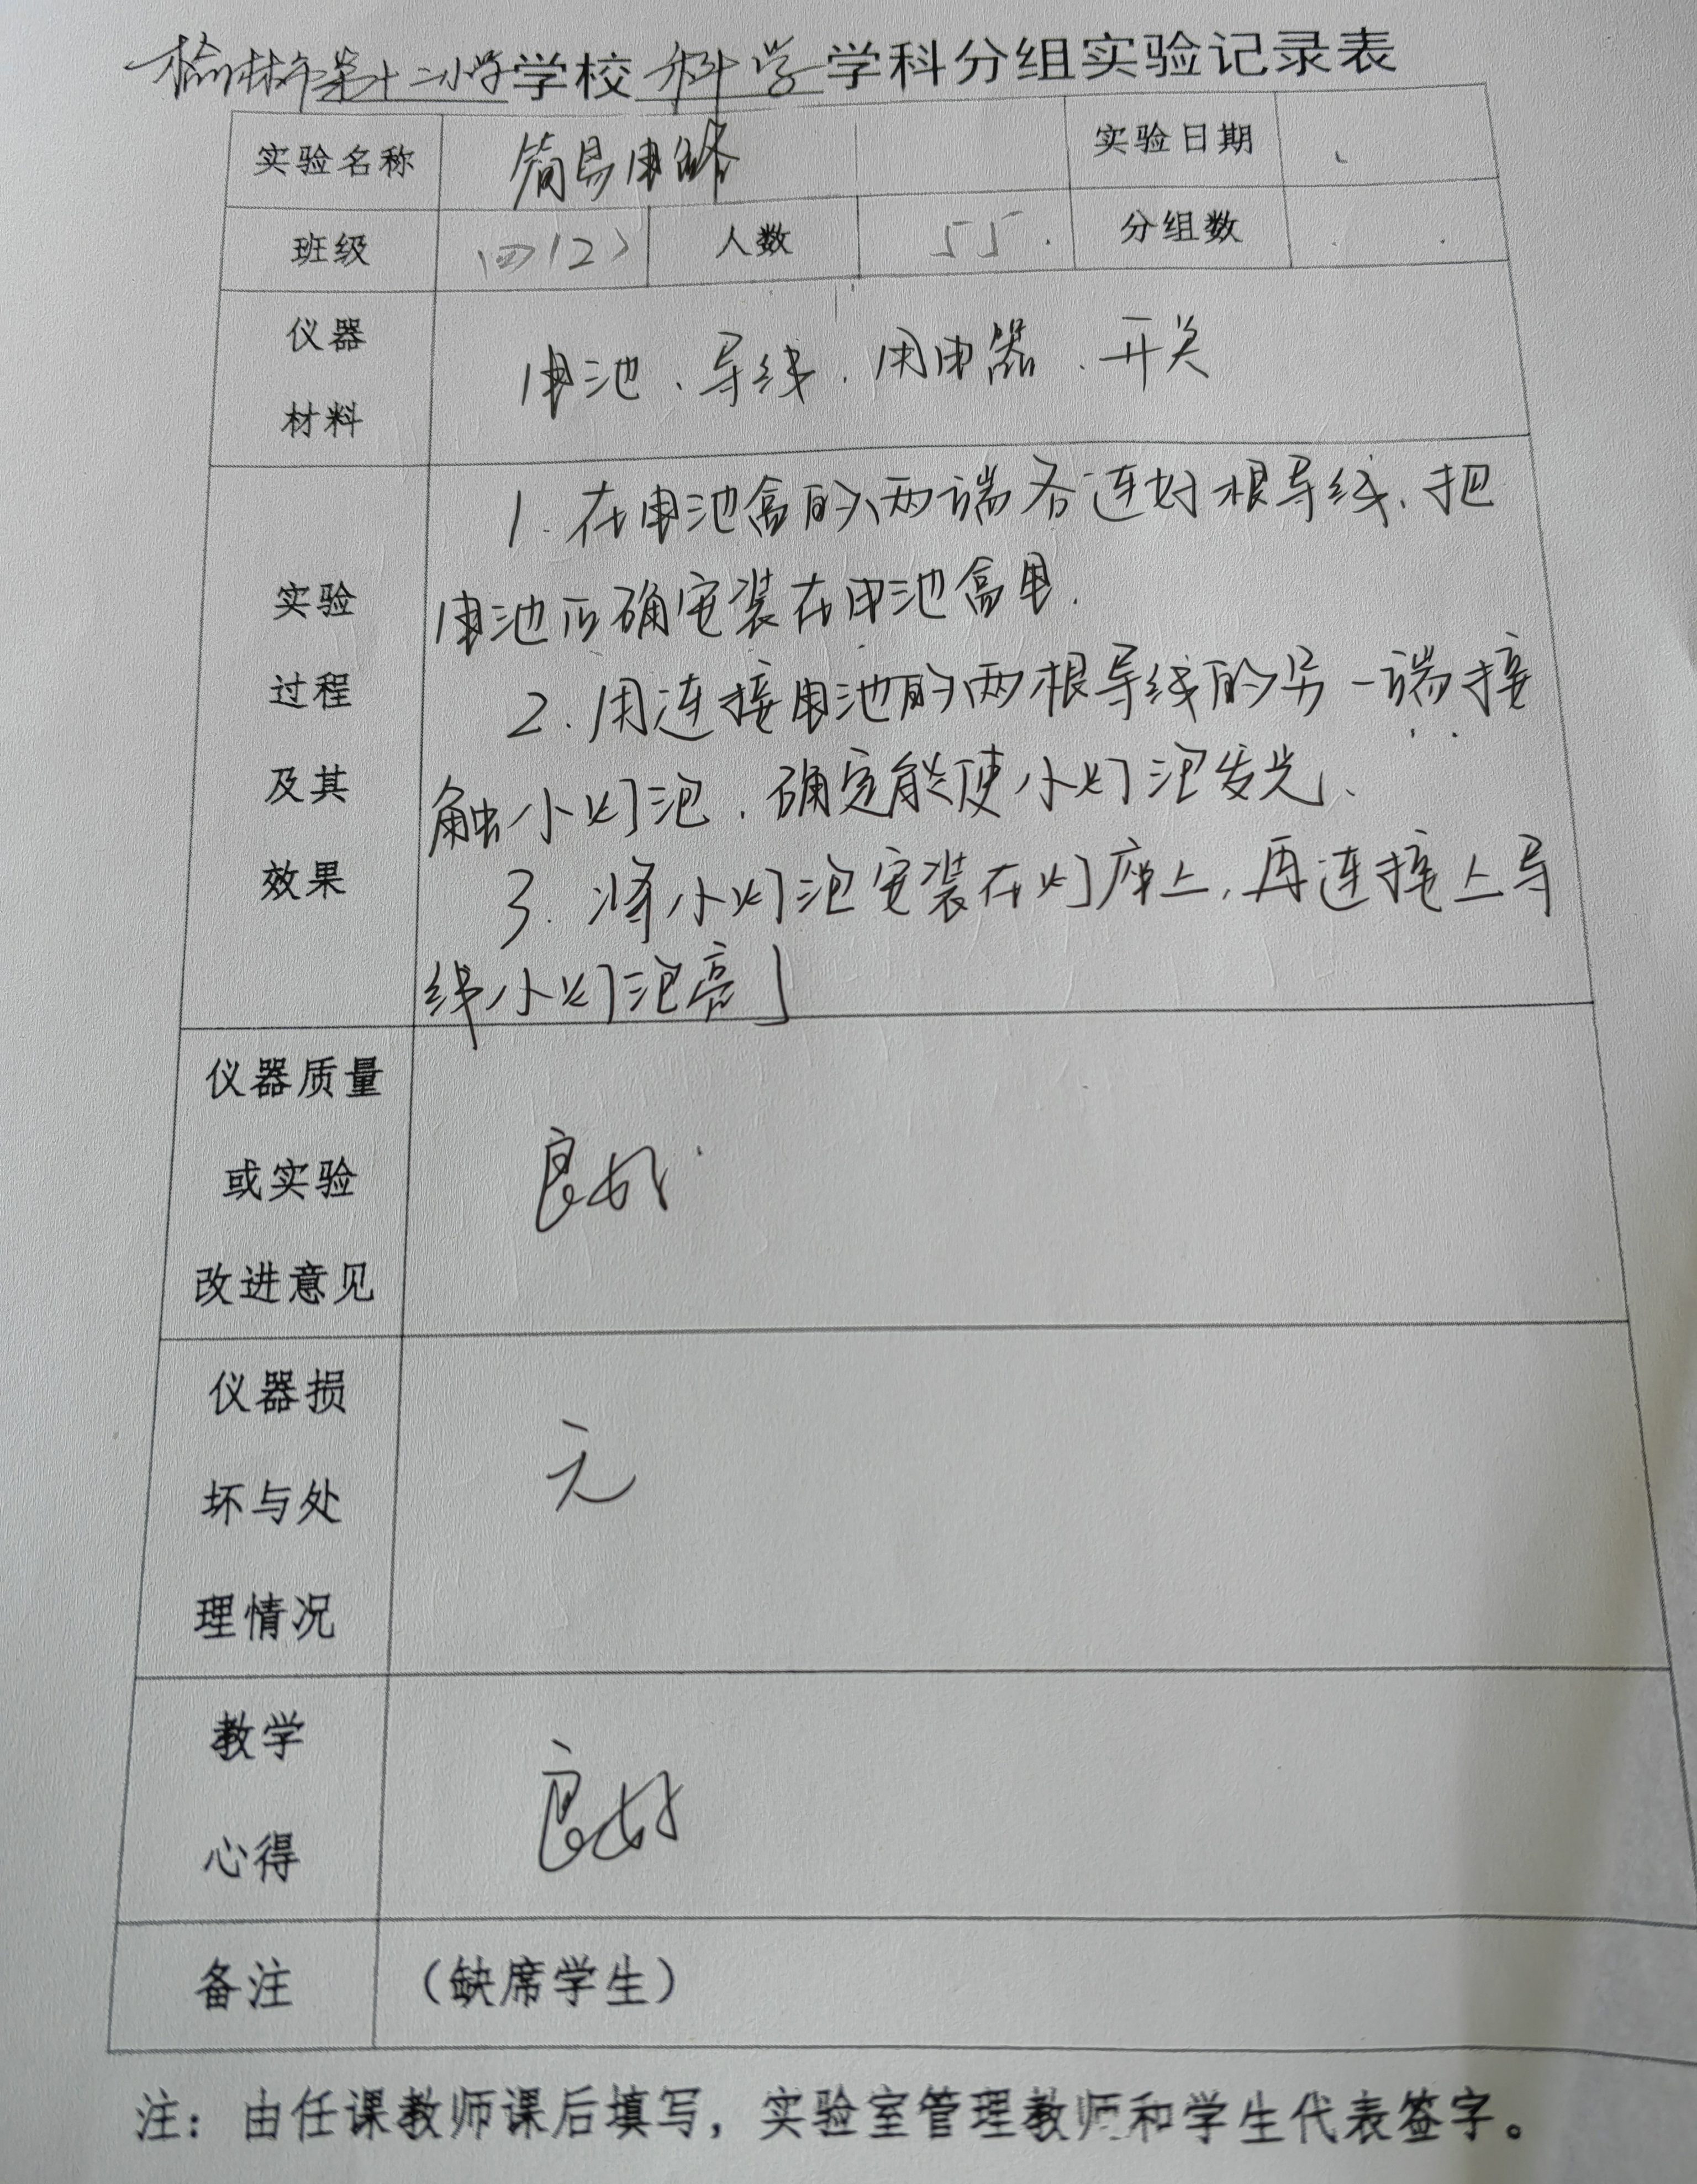 榆林市第十二小学学校科学学科分组实验记录表
实验名称 简易电路 实验日期
班级 四(2) 人数 55 分组数
仪器
材料
电池、导线、用电器、开关
实验
过程
及其
效果
1.在电池盒的两端各连好根导线、把
电池正确安装在电池盒里.
2.用连接电池的两根导线的另一端接
触小灯泡、确定能使小灯泡发光、
3.将小灯泡安装在灯座上,再连接上导
线小灯泡亮了
仪器质量
或实验
改进意见
良好
仪器损
坏与处
理情况
无
教学
心得
良好
备注 (缺席学生)
注:由任课教师课后填写,实验室管理教师和学生代表签字。